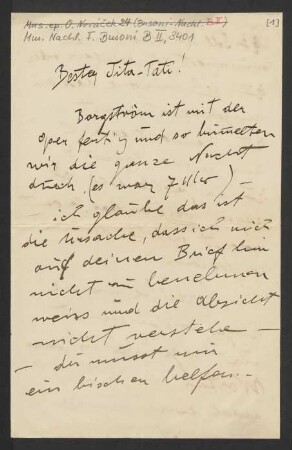 Mus. ep. O. Nováček 24 (Busoni-Nachl. B II)
[1]
Mus. Nachl. F. Busoni B II, 3401
Bester Tita-Tati!
Borgström ist mit der
Oper fertig und so bummelten
wir die ganze Nacht
durch (es war 7 Uhr)
ich glaube das ist
die Ursache, dass ich mich
auf deinen Brief hin
nicht zu benehmen
weiss und die Absicht
nicht verstehe –
– du musst mir
ein bischen helfen. –